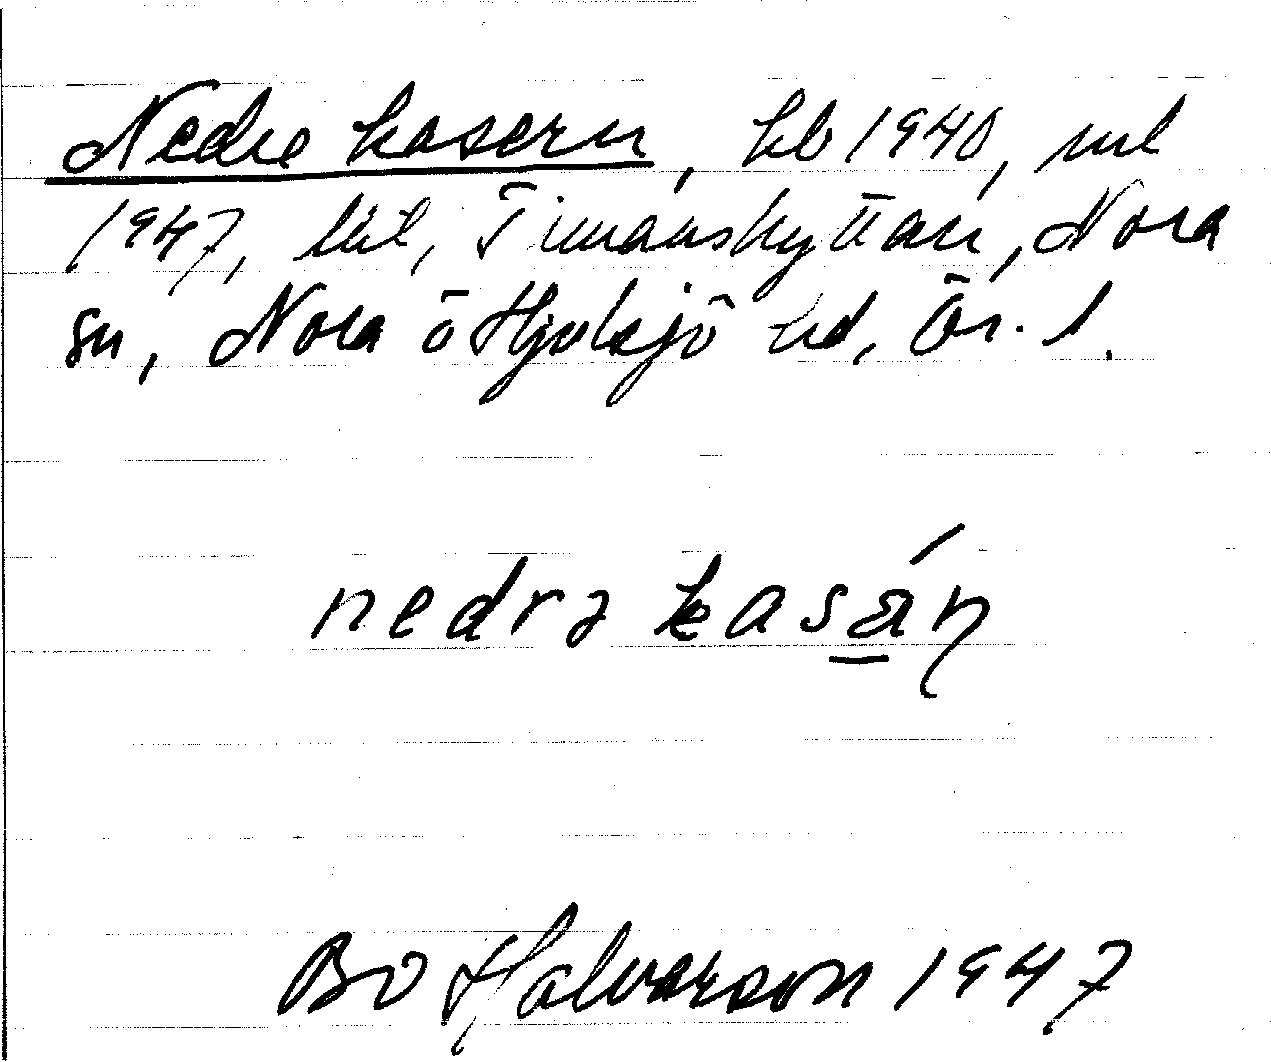 Nedre kasern, hb 1940, ml
1947, lht, Timanshyttan, Nora
sn, Nora o Hjulsjö hd, Ör. l.
nedrə kasä́n
Bo Halvarson 1947